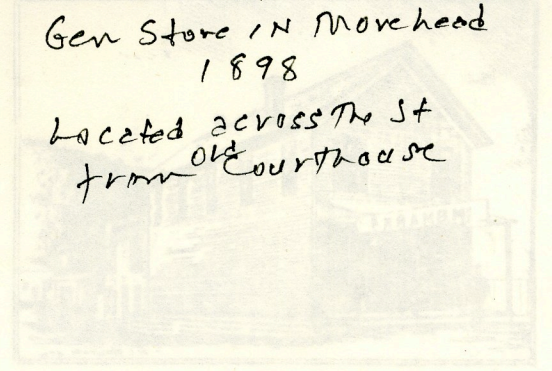 Gen Store IN Morehead
1898
Located across The St
from Old Courthouse